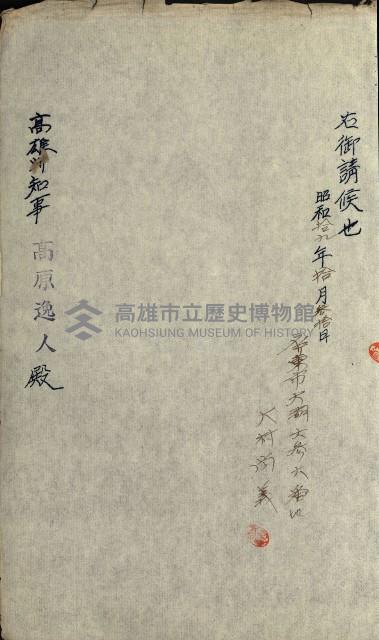 右御請候也
昭和拾九年拾月參拾日
屏東市大湖大番六番地
大村
義
高雄州知事 高原逸人殿
高雄市立歷史博物館
KAOHSIUNG MUSEUM OF HISTORY